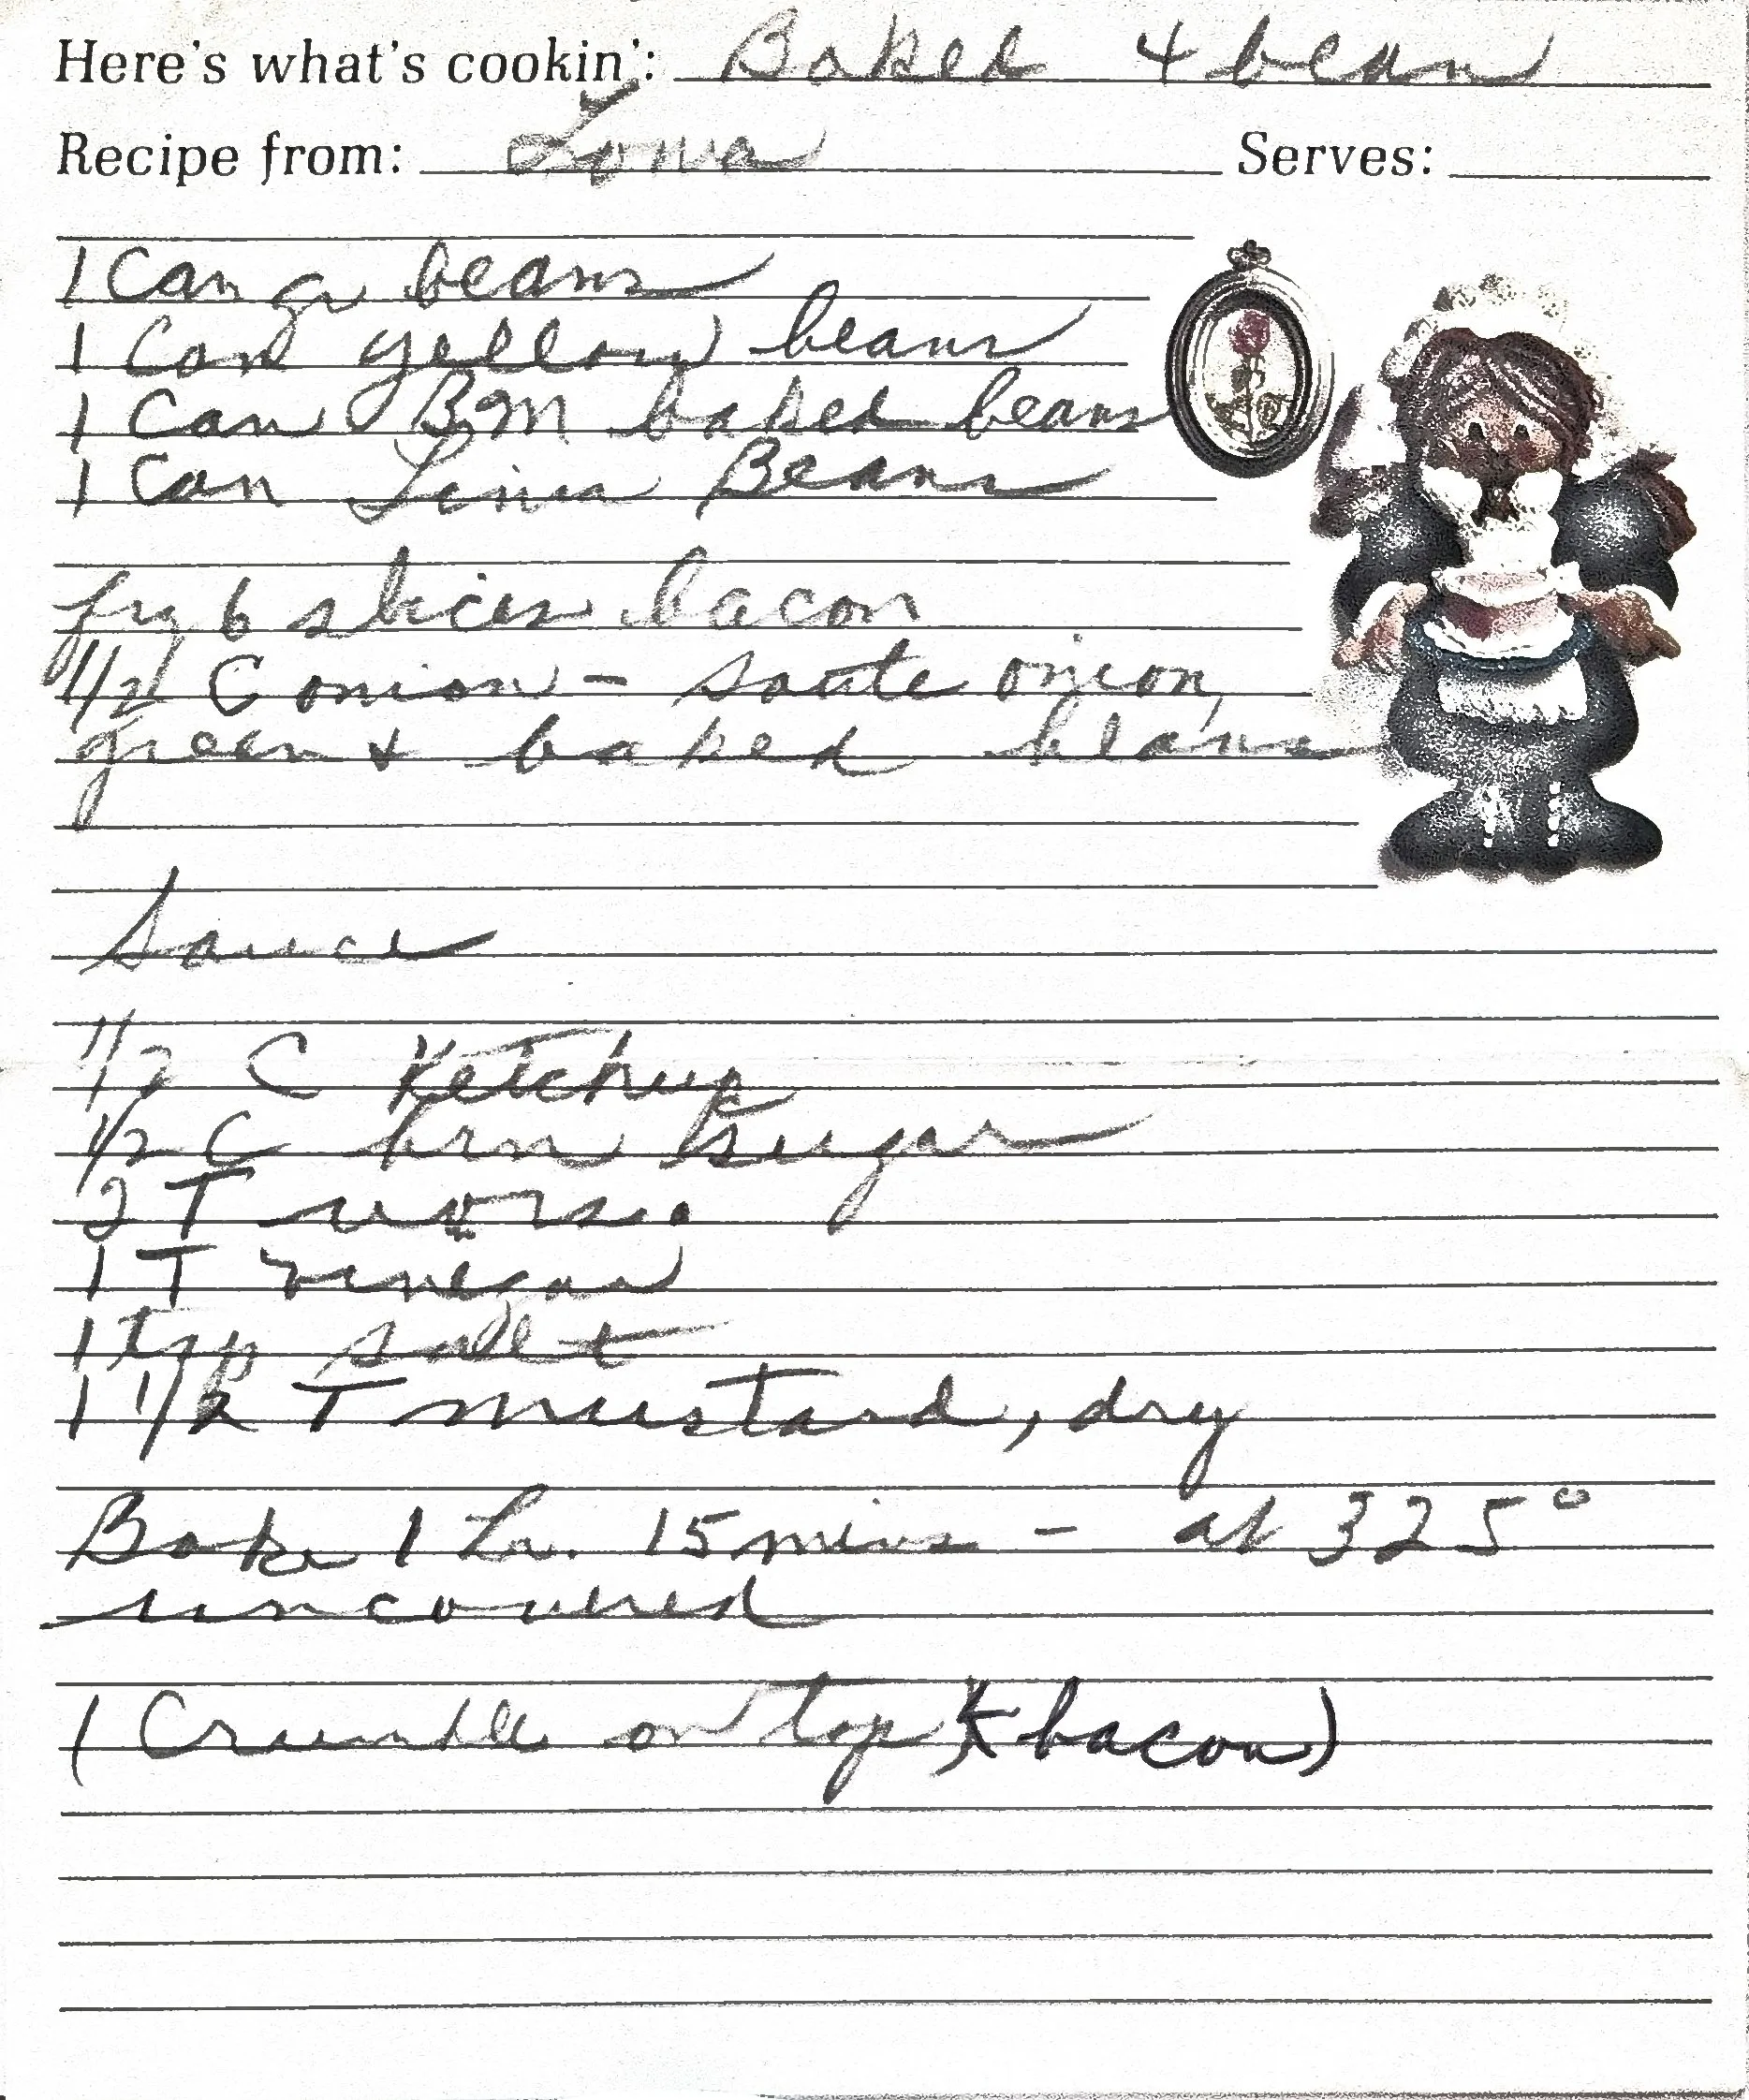 Here's what's cookin': Baked 4 bean
Recipe from: Serves:
1 Can gr beans
1 Can yellow beans
1 Can B&M baked beans
1 Can Lima Beans
fry 6 slices bacon
1/2 C onion - saute onion,
green & baked beans
Sauce
1/2 C Ketchup
1/2 C brn sugar
2 T wors.
1 T vinegar
1 tsp salt
1 1/2 T mustard, dry
Bake 1 hr. 15 mins - at 325°
uncovered
(Crumble on top) (bacon)